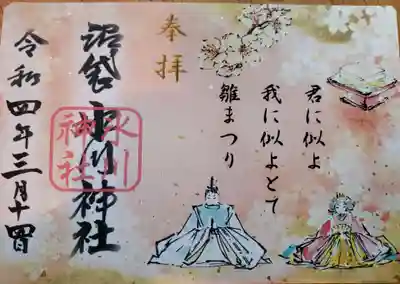 君に似よ
我に似よとて
雛まつり
奉拝
沼袋氷川神社
氷川神社
令和四年三月十四日